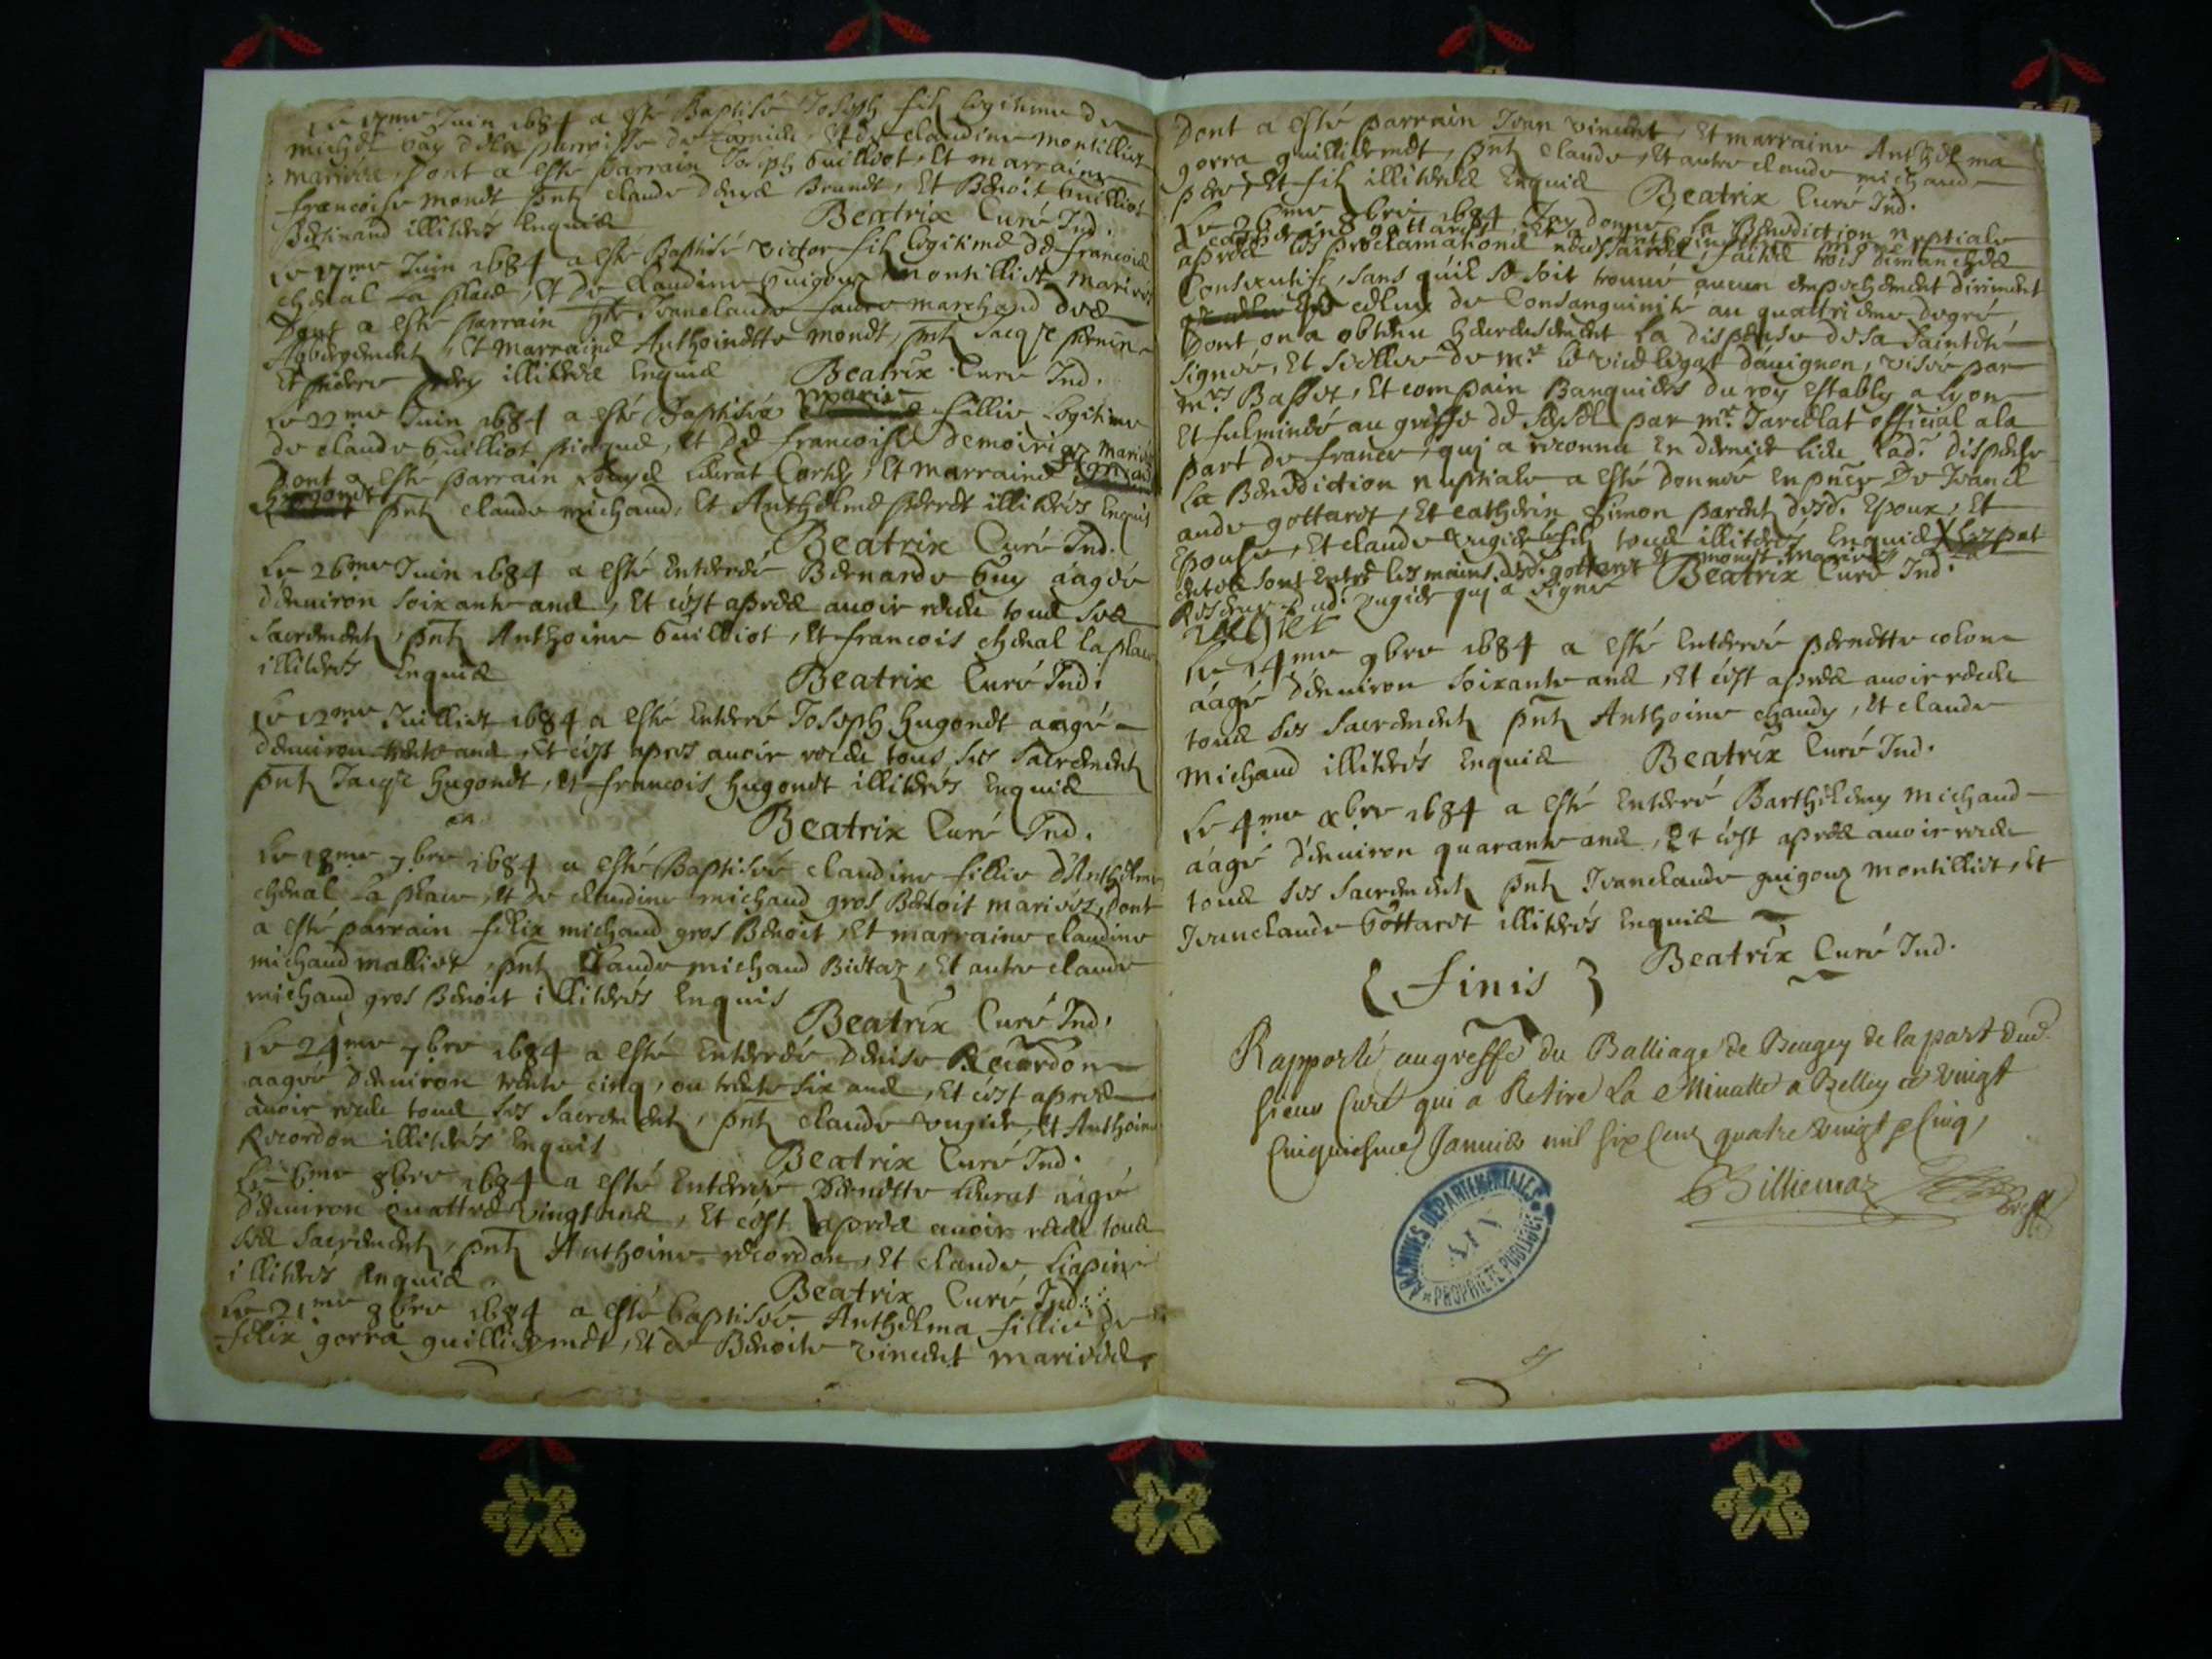 Le 17me Juin 1684 a esté Baptisé Joseph fils legitime de
michel vay dela parroisse de et de claudine montilliet
mariées, Dont a esté parrain Joseph Guilliot, Et marraine
francoise monet pnts claude Brunet, Et Benoit Guilliot
illiterés Enquis
Beatrix Curé Ind.
Le 17me Juin 1684 a esté Baptisé victor fils legitime de francois
chenal La place, Et De claudine Guigoux montilliet mariés
Dont a esté parrain Ivanclaude faure marchand des
Et marraine Anthoinette monet, pnts Jacqs
Et illiteres Enquis
Beatrix Curé Ind.
Le 22me Juin 1684 a esté Baptisée marie fillie Legitime
de claude Guilliot pingue, et De francoise Demoiriaz mariés
Dont a esté parrain Lierat Et marraine
Hugonet pnts claude michaud, Et Anthelme illiterés Enquis
Beatrix Curé Ind.
Le 26me Juin 1684 a esté Enterrée Bernarde Guy aagée
d'enuiron soixante ans, Et c'est apres auoir receu tous ses
sacrements, pnts Anthoine Guilliot, Et francois chenal la place
illiterés Enquis
Beatrix Curé Ind.
Le 12me Juilliet 1684 a esté Enterré Joseph Hugonet aagé
d'enuiron trente ans, Et c'est apres auoir receu tous ses sacrements
pnts Jacqs Hugonet, et francois Hugonet illiterés Enquis
Beatrix Curé Ind.
Le 18me 7bre 1684 a esté Baptisée claudine fillie d'Anthelme
chenal La place, et de claudine michaud gros Benoit mariéz, Dont
a esté parrain felix michaud gros Benoit, Et marraine claudine
michaud malliet, pnts claude michaud Bistaz, Et autre claude
michaud gros Benoit illiterés Enquis
Beatrix Curé Ind.
Le 24me 7bre 1684 a esté Enterrée Denise Recordon
aagée d'enuiron trente cinq, ou trente six ans, Et c'est apres
auoir receu tous ses sacrements, pnts claude vugier, Et Anthoine
Recordon illiterés Enquis
Beatrix Curé Ind.
Le 6me 8bre 1684 a esté Enterrée Pernette Lierat aagé
d'enuiron quattre vingt ans, Et c'est apres auoir receu tous
ses sacrements, pnts Anthoine recordon, Et claude
illiteres Enquis.
Beatrix Curé Ind.
Le 21me 8bre 1684 a esté baptisée Anthelma fillie de
felix gorra guilliermet, Et de Benoite vincent mariées,
Dont a esté parrain Ivan vincent, Et marraine Anthelma
gorra guilliermet, pnts claude, Et autre claude michaud
pere, Et fils illiteres Enquis
Beatrix Curé Ind.
Le 26me 8bre 1684 Jay donné la Benediction nuptiale
a gottaret, Et a monet
apres les proclamations necessaires, faites trois dimanches
Consecutifs, sans qu'il se soit trouué aucun empechement diriment
celuy de Consanguinité au quattrieme degré,
Dont on a obtenu heureusement La dispense de sa Sainteté
signée, Et scellée de mr le vice legat dauignon, visée par
mrs Basset, Et compain Banquiers du roy establys a Lyon
Et fulminée au greffe de par mr Jarcellat official a la
part de france, qui a reconnu en dernier lieu lad. dispense
La Benediction nuptiale a esté donnée en pnce De Ivancl
aude gottaret, Et catherin Simon parent desd. Epoux, Et
Epouse, Et claude vugier fils tous illiterés Enquis
sont entre les mains desd. gottaret et monet mariés
dud. vugier qui a signé Beatrix Curé Ind.
Le 14me 9bre 1684 a esté Enterrée pernette colon
aagé d'enuiron soixante ans, Et c'est apres auoir receu
tous ses sacrements pnts Anthoine chandy, Et claude
michaud illiterés Enquis
Beatrix Curé Ind.
Le 4me xbre 1684 a esté Enterré Barthelemy michaud
aagé d'enuiron quarante ans, Et c'est apres auoir receu
tous ses sacrements pnts Ivanclaude guigoux montilliet, Et
Ivanclaude Gottaret illiterés Enquis
Beatrix Curé Ind.
finis
Rapporté au greffe du Balliage de Beugey de la part dud
sieur Curé qui a Retiré La Minutte a Belley ce vingt
Cinquiesme Januier mil six Cens quatre vingt Cinq,
Billiemaz
ARCHIVES DÉPARTEMENTALES
AIN
PROPRIÉTÉ PUBLIQUE